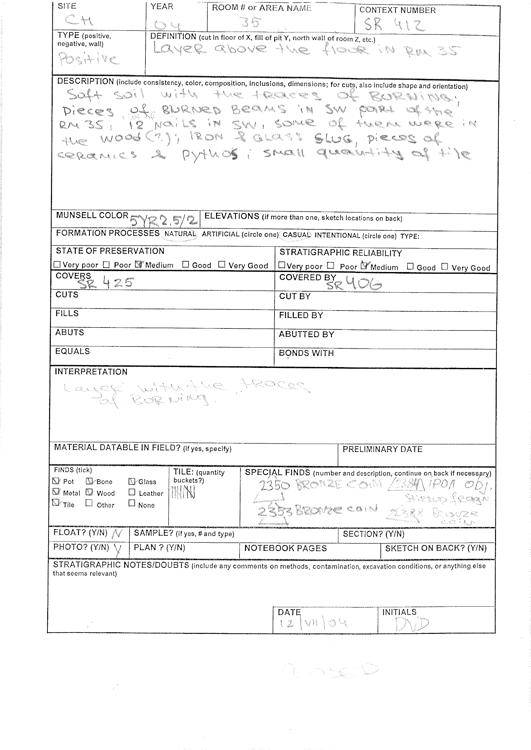 SITE YEAR ROOM # or AREA NAME CONTEXT NUMBER
CH 04 35 SR 412
TYPE (positive, negative, wall) DEFINITION (cut in floor of X, fill of pit Y, north wall of room Z, etc.)
Positive Layer above the floor in RM 35
DESCRIPTION (include consistency, color, composition, inclusions, dimensions; for cuts, also include shape and orientation)
Soft soil with the traces of BURNING;
pieces of BURNED Beams in SW part of the
RM 35; 12 nails in SW, some of them were in
the wood (?); IRON & GLASS SLUG, pieces of
ceramics & pythos; small quantity of tile
MUNSELL COLOR 5YR2.5/2 ELEVATIONS (if more than one, sketch locations on back)
FORMATION PROCESSES NATURAL ARTIFICIAL (circle one) CASUAL INTENTIONAL (circle one) TYPE:
STATE OF PRESERVATION STRATIGRAPHIC RELIABILITY
Very poor Poor Medium Good Very Good Very poor Poor Medium Good Very Good
COVERS SR 425 COVERED BY SR 406
CUTS CUT BY
FILLS FILLED BY
ABUTS ABUTTED BY
EQUALS BONDS WITH
INTERPRETATION
Layer with the traces
of BURNING.
MATERIAL DATABLE IN FIELD? (if yes, specify) PRELIMINARY DATE
FINDS (tick) TILE: (quantity buckets?) SPECIAL FINDS (number and description, continue on back if necessary)
Pot Bone Glass 2350 BRONZE COIN 2384 IRON OBJ.
Metal Wood Leather
Tile Other None 2353 BRONZE COIN 2388 Bronze coin
FLOAT? (Y/N) N SAMPLE? (if yes, # and type) SECTION? (Y/N)
PHOTO? (Y/N) Y PLAN ? (Y/N) NOTEBOOK PAGES SKETCH ON BACK? (Y/N)
STRATIGRAPHIC NOTES/DOUBTS (include any comments on methods, contamination, excavation conditions, or anything else
that seems relevant)
DATE INITIALS
12 VII 04 DVD